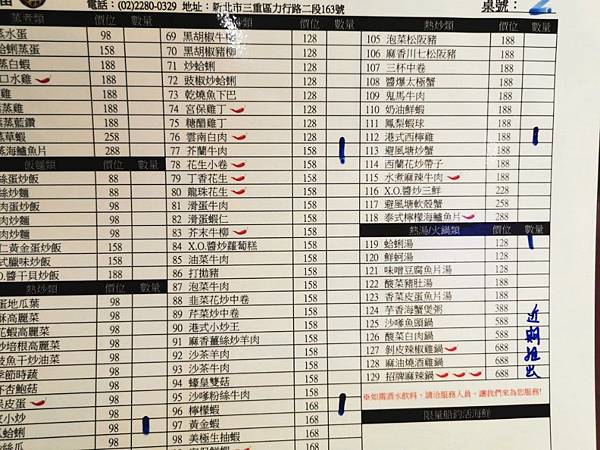 電話：(02)2280-0329 地址：新北市三重區力行路二段163號
桌號：2
蒸煮類 價位 數量
蒸水蛋 98
蛤蜊蒸蛋 158
蒸白蝦 188
口水雞 188
雞 188
蒸雞 188
蒸藍鑽 188
蒸草蝦 258
蒸海鱸魚片 288
飯麵類 價位 數量
絲蛋炒飯 88
絲炒麵 88
肉蛋炒飯 98
肉炒麵 98
仁黃金蛋炒飯 158
式臘味炒飯 158
醬干貝炒飯 188
熱炒類 價位 數量
蛋地瓜葉 98
酥高麗菜 98
花蝦高麗菜 98
炒培根高麗菜 98
鼓魚干炒油菜 98
季節時蔬 98
杏鮑菇 98
皮蛋 98
小炒 98
瓜蛤蜊 98
絲瓜 98
類 價位 數量
69 黑胡椒牛柳 128
70 黑胡椒豬柳 128
71 炒蛤蜊 128
72 豉椒炒蛤蜊 128
73 乾燒魚下巴 128
74 宮保雞丁 128
75 糖醋雞丁 128
76 雲南白肉 128
77 芥蘭牛肉 158
78 花生小卷 158
79 丁香花生 158
80 龍珠花生 158
81 滑蛋牛肉 158
82 滑蛋蝦仁 158
83 芥末牛柳 158
84 X.O.醬炒蘿蔔糕 158
85 油菜牛肉 158
86 打拋豬 158
87 泡菜牛肉 158
88 韭菜花炒中卷 158
89 芹菜炒中卷 158
90 港式小炒王 158
91 麻香薑絲炒羊肉 158
92 沙茶羊肉 158
93 沙茶牛肉 158
94 蠔皇雙菇 158
95 沙嗲粉絲牛肉 158
96 檸檬蝦 168
97 黃金蝦 168
98 美極生抽蝦 168
168
熱炒類 價位 數量
105 泡菜松阪豬 188
106 麻香川七松阪豬 188
107 三杯中卷 188
108 醬爆太極蟹 188
109 鬼馬牛肉 188
110 奶油鮮蝦 188
111 鳳梨蝦球 188
112 港式西檸雞 188
113 避風塘炒蟹 188
114 西蘭花炒帶子 188
115 水煮麻辣牛肉 188
116 X.O.醬炒三鮮 228
117 避風塘軟殼蟹 258
118 泰式檸檬海鱸魚片 288
熱湯/火鍋類 價位 數量
119 蛤蜊湯 128
120 鮮蚵湯 128
121 味噌豆腐魚片湯 128
122 酸菜豬肚湯 188
123 香菜皮蛋魚片湯 188
124 芋香海蟹煲粥 388
125 沙嗲魚頭鍋 588
126 酸菜白肉鍋 588
127 剝皮辣椒雞鍋 688
128 麻油燒酒雞鍋 688
129 招牌麻辣鍋 688
近期推出
※如需酒水飲料，請洽服務人員，讓我們來為您服務!
限量船釣活海鮮